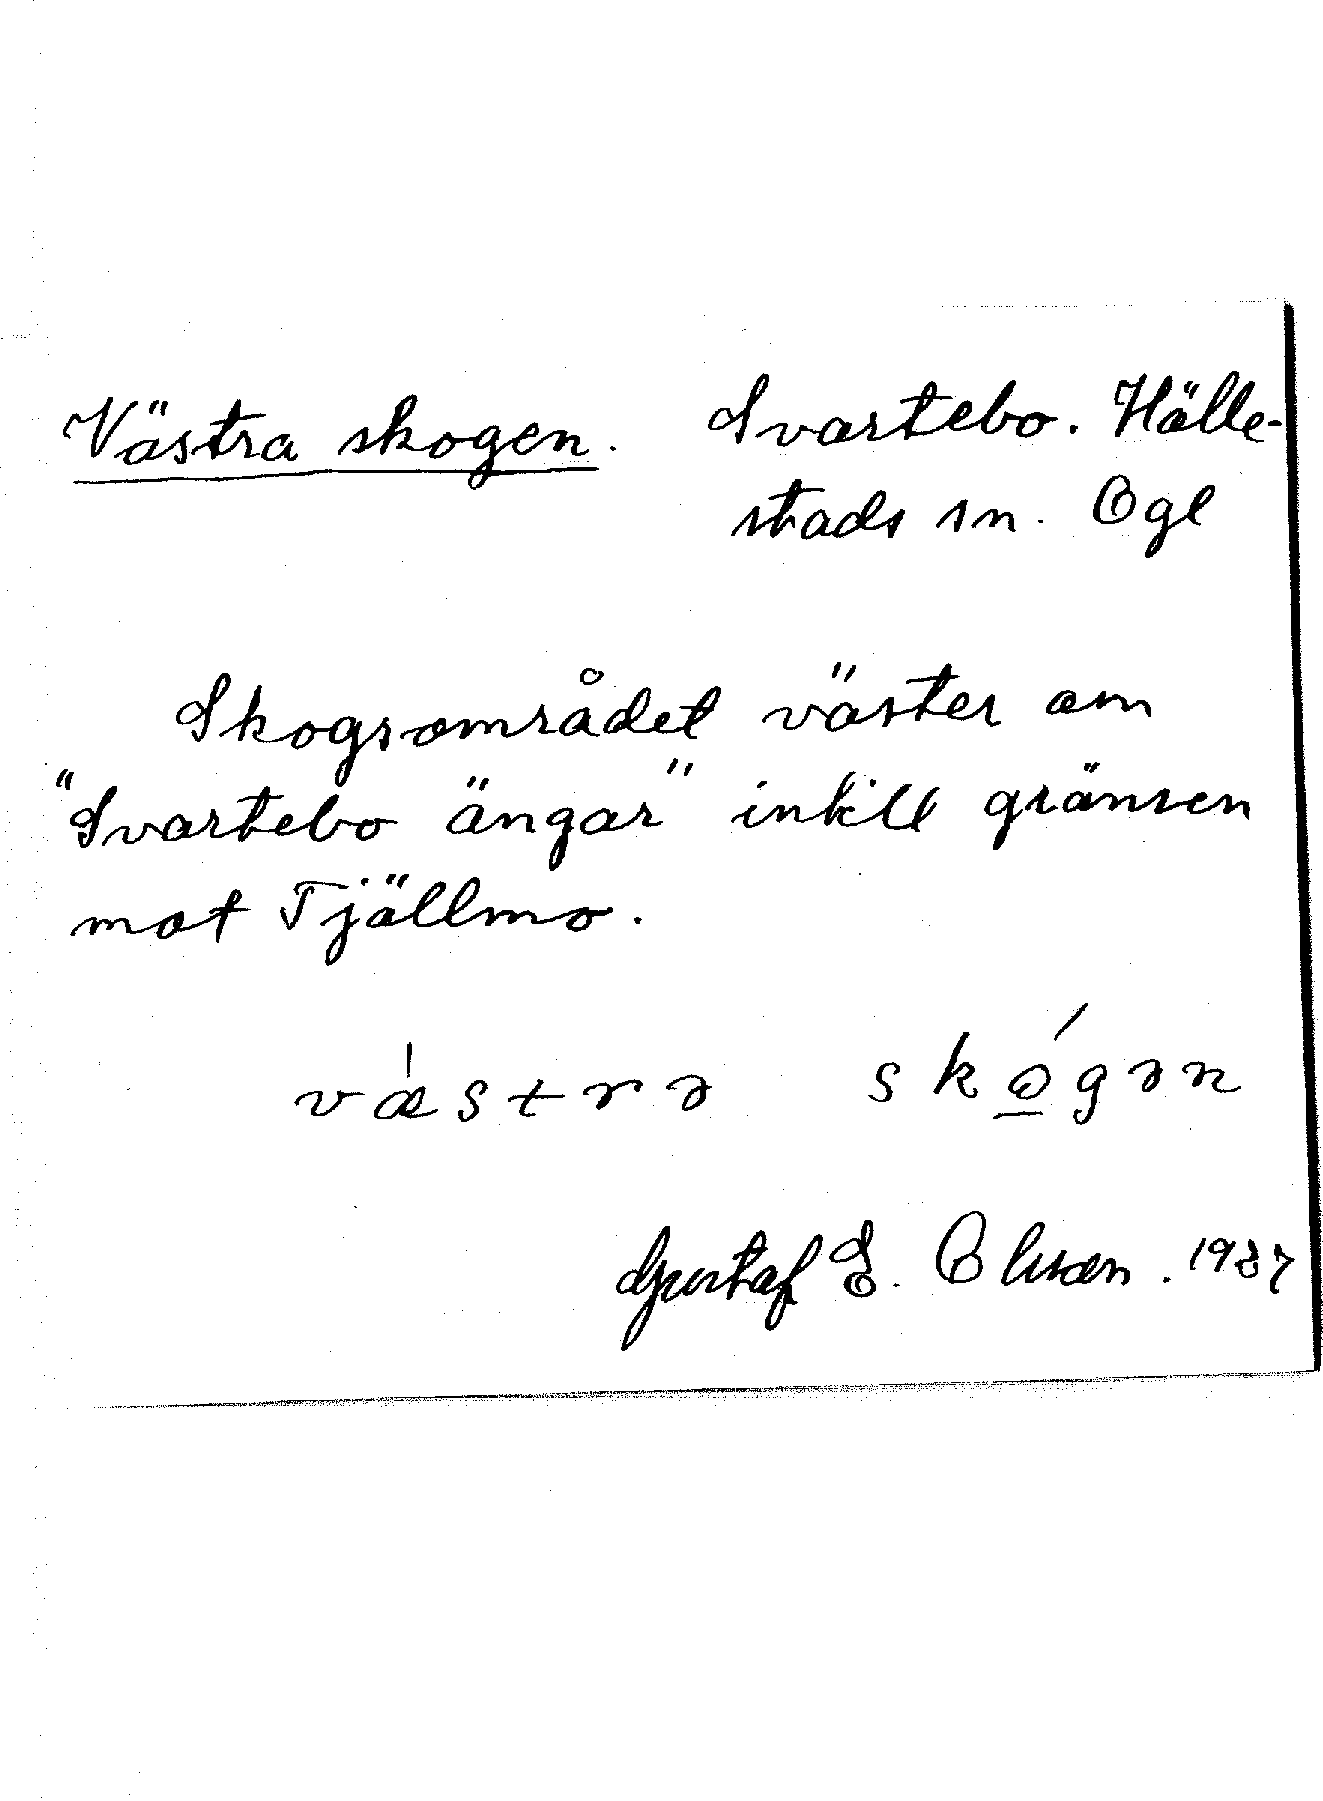 Västra skogen. Svartebo. Hälle-
stads sn. Ogl
Skogsområdet väster om
"Svartebo ängar" intill gränsen
mot Tjällmo.
væ̍strə skó̱gən
Gustaf E. Olsson. 1937